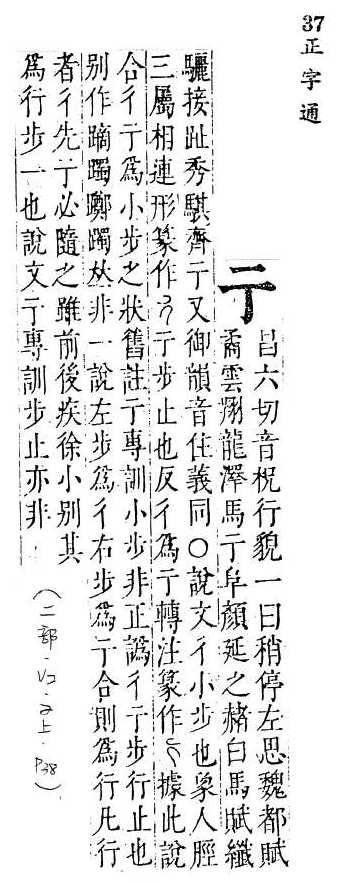 37正字通
亍
昌六切音柷行貌一曰稍停左思魏都賦
矞雲翔龍澤馬亍阜顏延之赭白馬賦纖
驪接趾秀騏齊亍又御韻音住義同○說文彳小步也象人脛
三屬相連形篆作彳亍步止也反彳爲亍轉注篆作亍據此說
合彳亍爲小步之狀舊註亍專訓小步非正譌彳亍步行止也
別作蹢躅躑躅𠀤非一說左步爲彳右步爲亍合則爲行凡行
者彳先亍必隨之雖前後疾徐小別其
爲行步一也說文亍專訓步止亦非
(二部·V2·子上·P38)